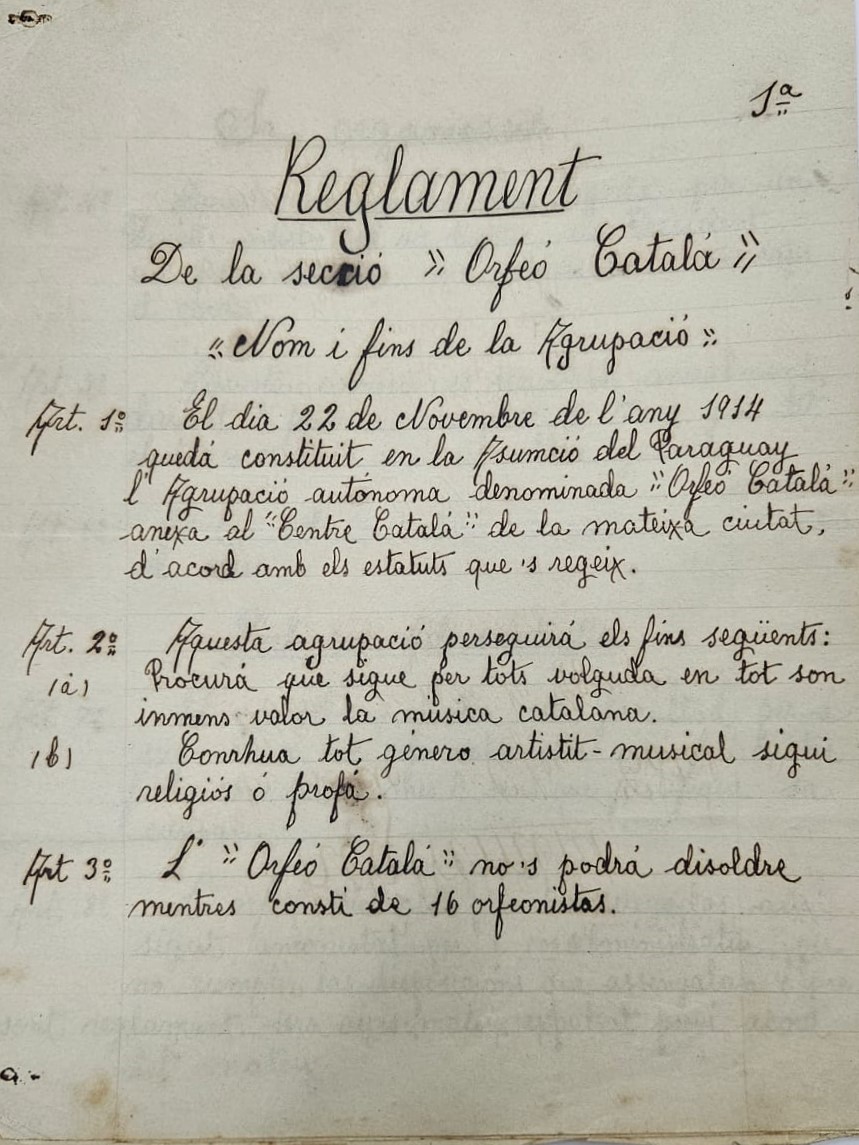 1ª
Reglament
De la secció " Orfeó Catalá "
"Nom i fins de la Agrupació"
Art. 1º El dia 22 de Novembre de l'any 1914
quedá constituit en la Asumció del Paraguay
l'Agrupació autónoma denominada "Orfeó Catalá"
anexa al "Centre Catalá" de la mateixa ciutat,
d'acord amb els estatuts que 's regeix.
Art. 2º Aquesta agrupació perseguirá els fins següents:
(a) Procurá que sigue per tots volguda en tot son
inmens valor la música catalana.
(b) Conrhua tot género artistit-musical sigui
religiós ó profá.
Art 3º L' "Orfeó Catalá" no's podrá disoldre
mentres consti de 16 orfeonistas.